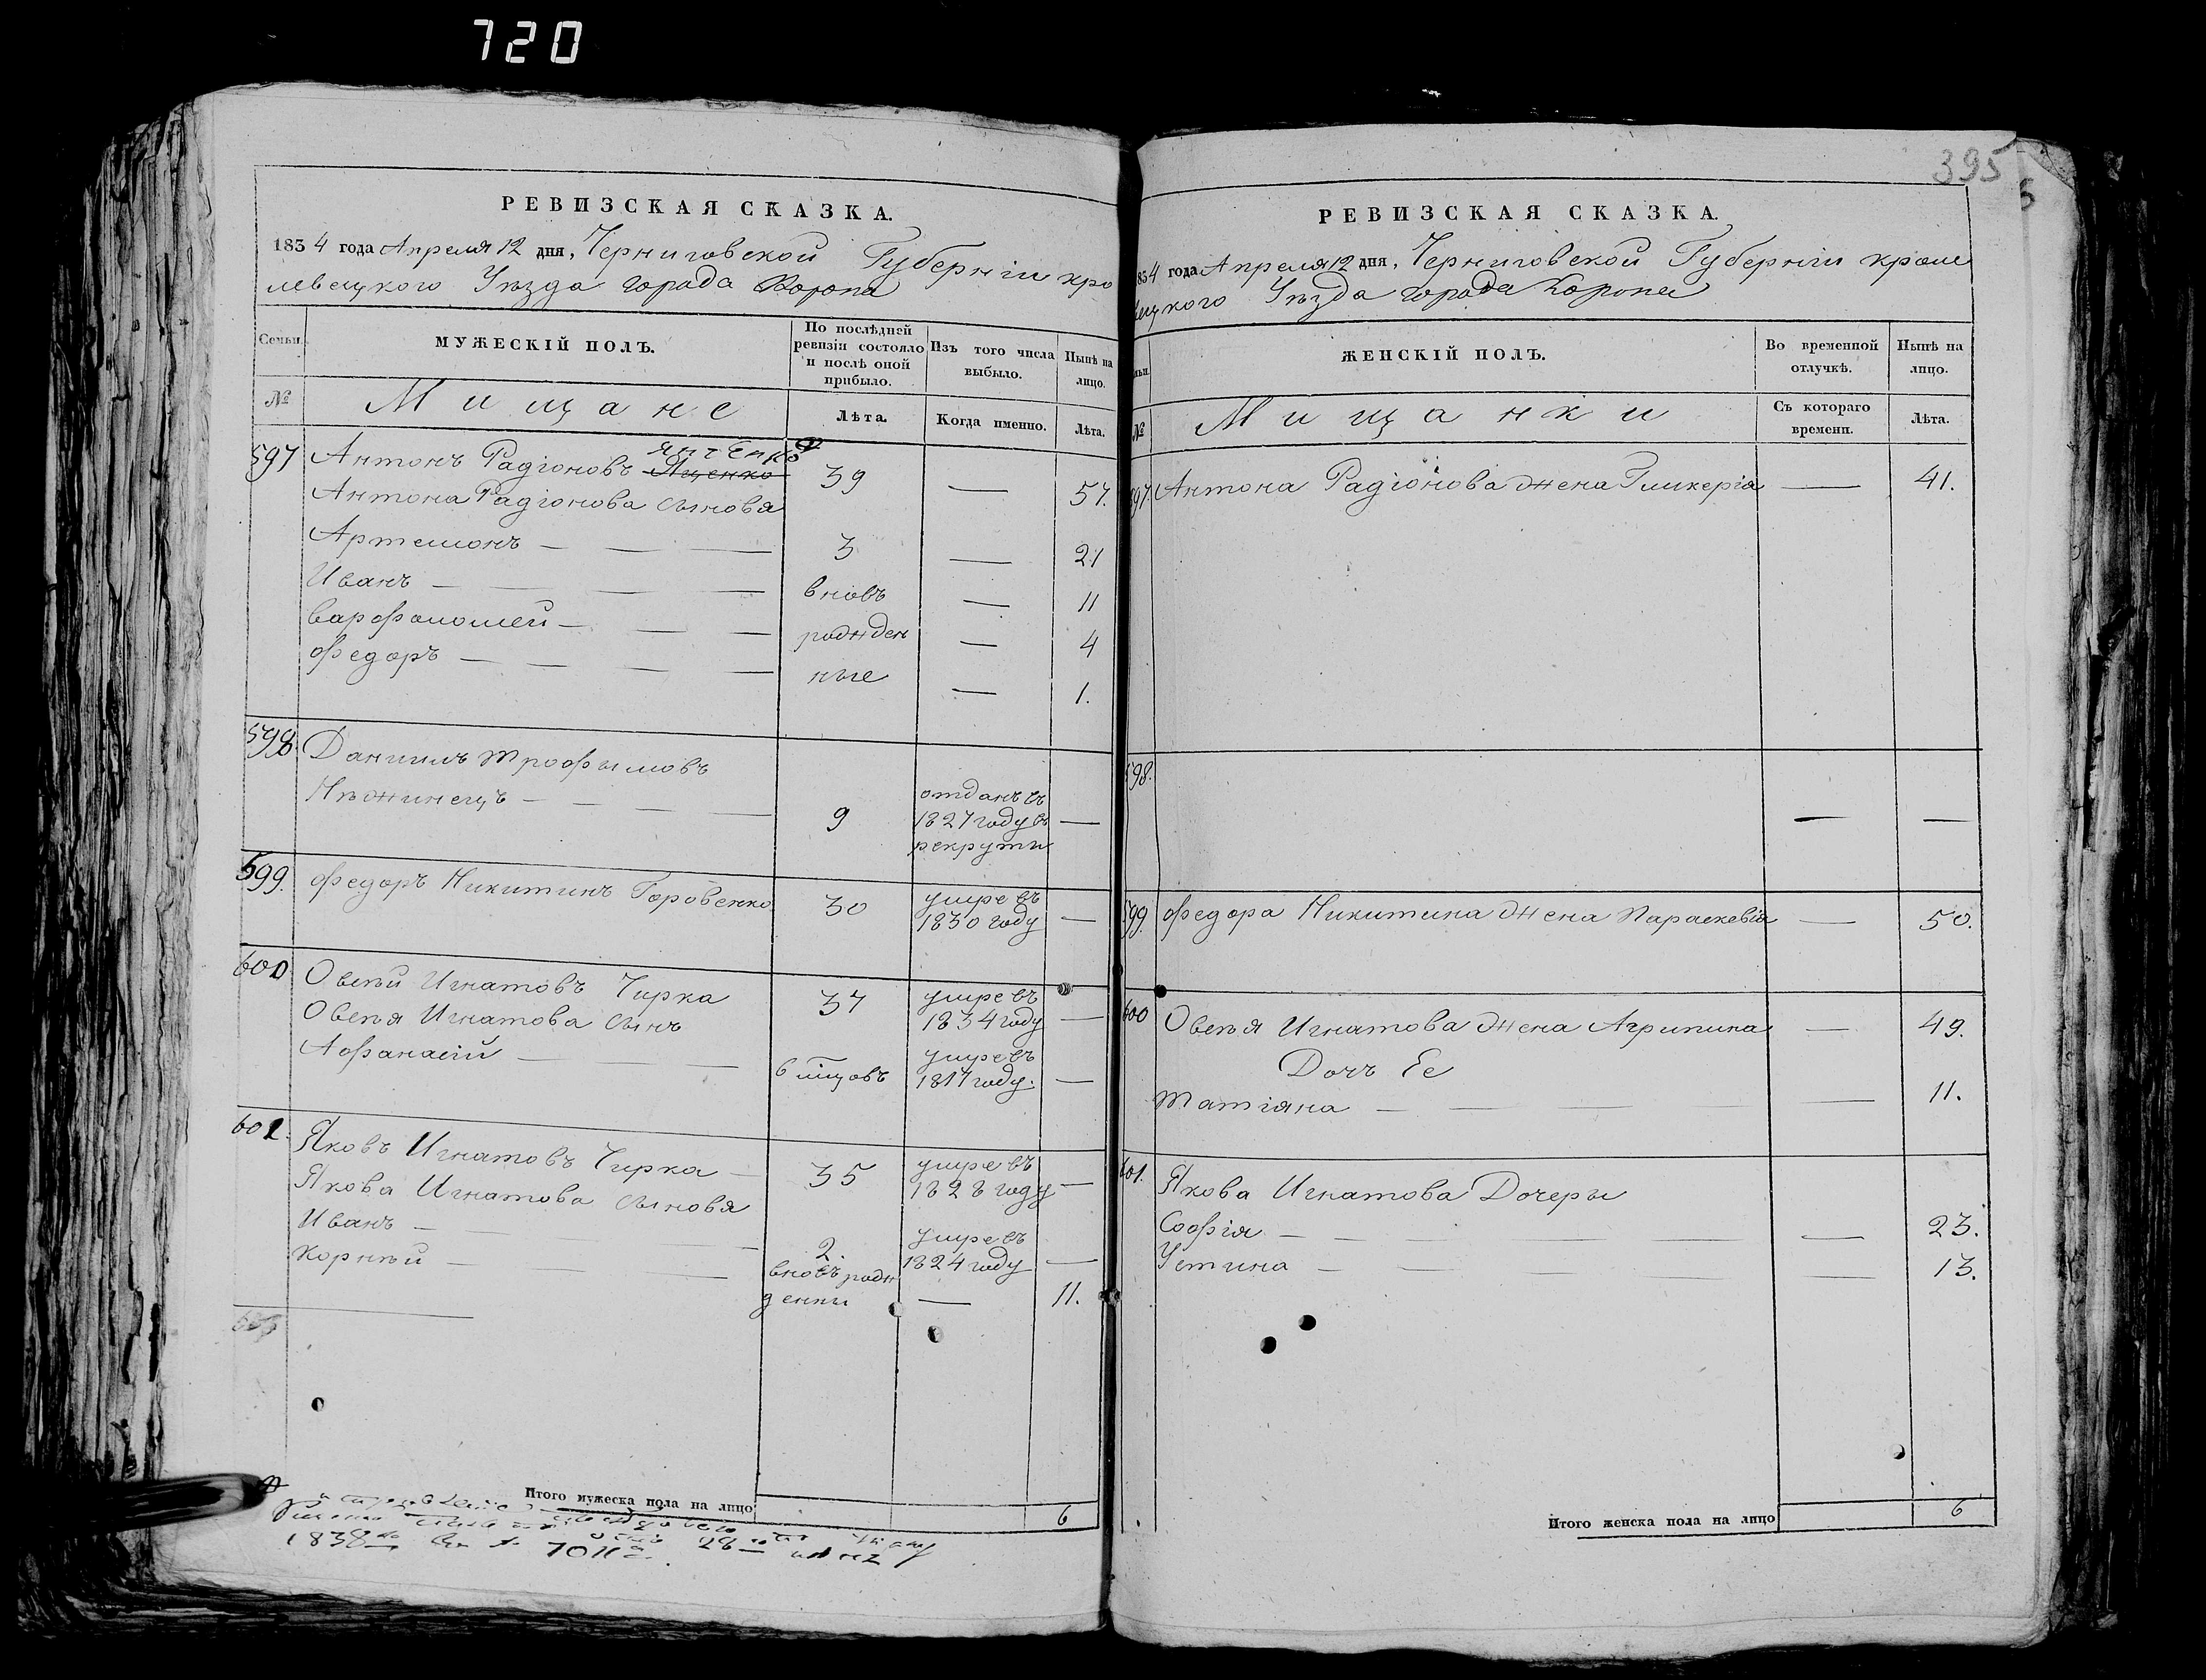 720
РЕВИЗСКАЯ СКАЗКА.
1834 года Апреля 12 дня, Черниговской Губерніи кро
левецкого Уѣзда города Коропа
Семьи.
МУЖЕСКІЙ ПОЛЪ.
По послѣдней ревизіи состояло и послѣ оной прибыло.
Изъ того числа выбыло.
Нынѣ на лицо.
№
Мищане
Лѣта.
Когда именно.
Лѣта.
Янченко
597 Антонъ Радіоновъ Яценко 39 — 57.
Антона Радіонова сыновя
Артемонъ — — — 3 — 21
Иванъ — — — вновь — 11
Варфоломей — — — рожден — 4
Федоръ — — — ные — 1.
598. Даниилъ Трофымовъ
Нѣжинецъ — — — 9 отданъ въ 1827 году въ рекруты —
599. Федоръ Никитинъ Горовенко 30 умре въ 1830 году —
600 Овсѣй Игнатовъ Чирка 37 умре въ 1834 году —
Овсѣя Игнатова сынъ
Афанасій — — 6 мцовъ умре въ 1817 году. —
601. Яковъ Игнатовъ Чирка — 35 умре въ 1828 году —
Якова Игнатова сыновя
Иванъ — — — 2. умре въ 1824 году —
Корнѣй — — — вновь рож денны — 11.
Итого мужеска пола на лицо 6
1838 7011 28
395
РЕВИЗСКАЯ СКАЗКА.
1834 года Апреля 12 дня, Черниговской Губерніи кроле
вецкого Уѣзда города Коропа
ЖЕНСКІЙ ПОЛЪ.
Во временной отлучкѣ.
Нынѣ на лицо.
№
Мищанки
Съ котораго времени.
Лѣта.
597. Антона Радіонова жена Гликерія — 41.
598. — —
599. Федора Никитина жена Параскевія — 50.
600 Овсѣя Игнатова жена Агрипина — 49.
Дочь Ее
Татіяна — — — — 11.
601. Якова Игнатова Дочеры
Софія — — — — — 23.
Устина — — — — — 13.
Итого женска пола на лицо 6